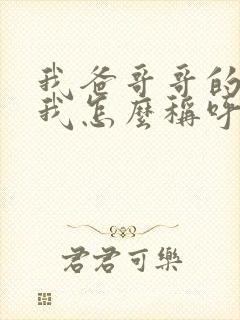 我爸哥哥的
我怎麼稱呼
君君可樂